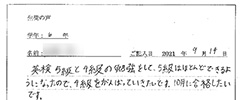 生徒の声
学年: 6 年
名前: ご記入日 2021 年 9 月 14 日
英検 5級と4級の勉強をして、5級はほとんどできるよ
うになったので、4級をがんばっていきたいです。10月に合格したい
です。